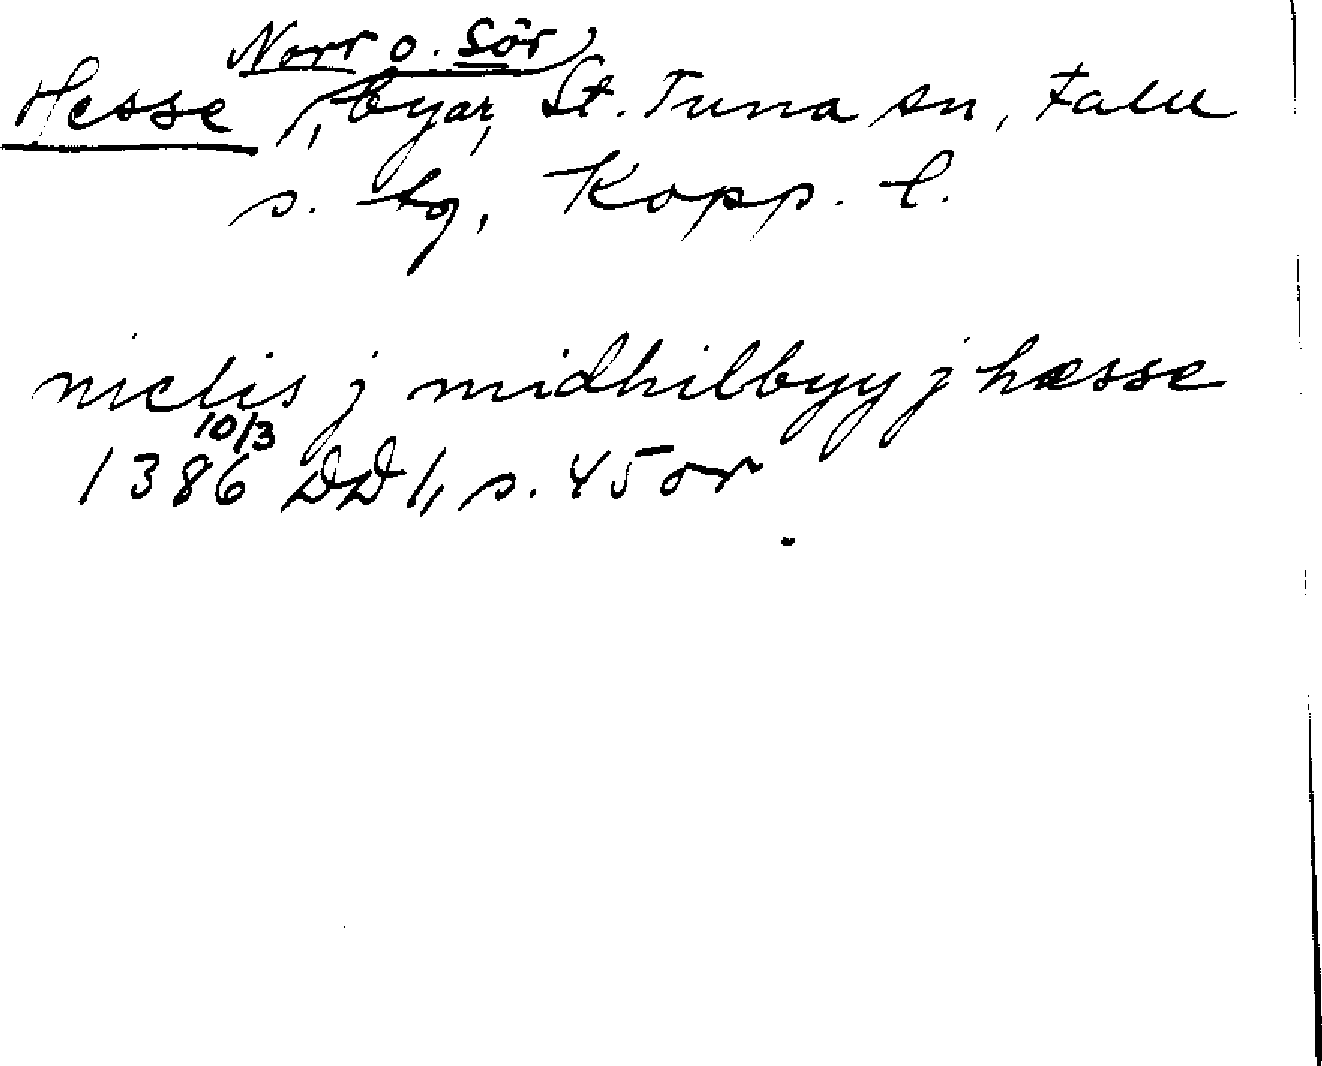 Norr o. Sör
Hesse, byar, St. Tuna sn, Falu
s. tg, Kopp. l.
niclis j midhilbyy j hæsse
10/3
1386 DD 1, s. 45 or